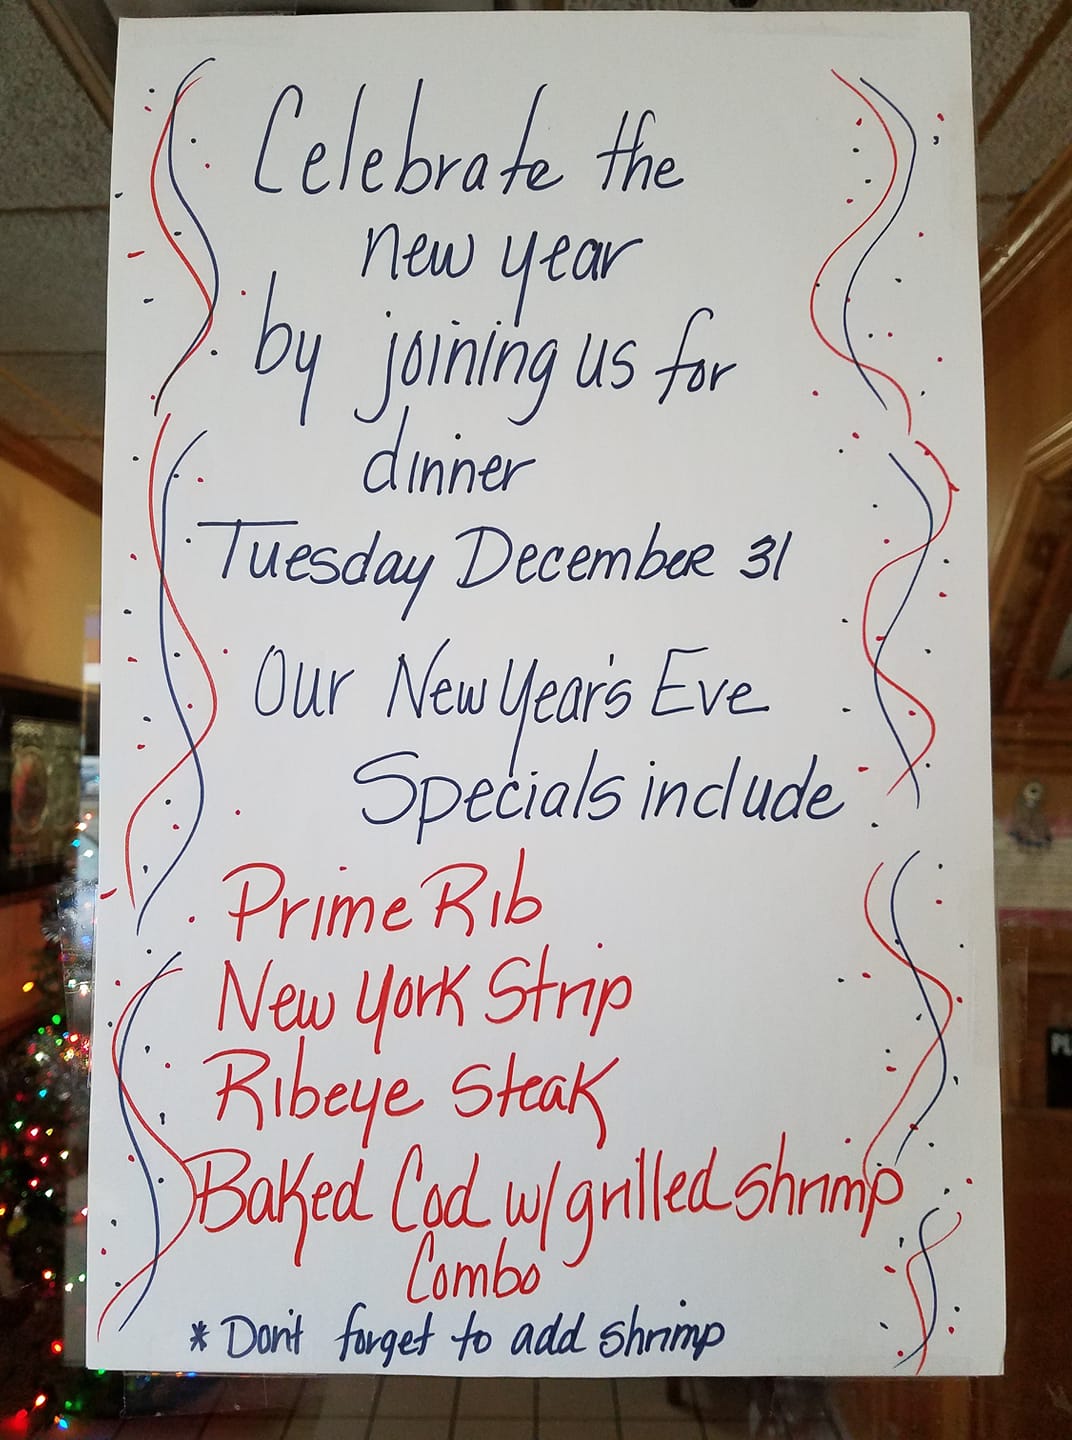 Celebrate the
new year
by joining us for
dinner
Tuesday December 31
Our New Year's Eve
Specials include
Prime Rib
New York Strip
Ribeye Steak
Baked Cod w/grilled shrimp
Combo
* Don't forget to add shrimp
PL